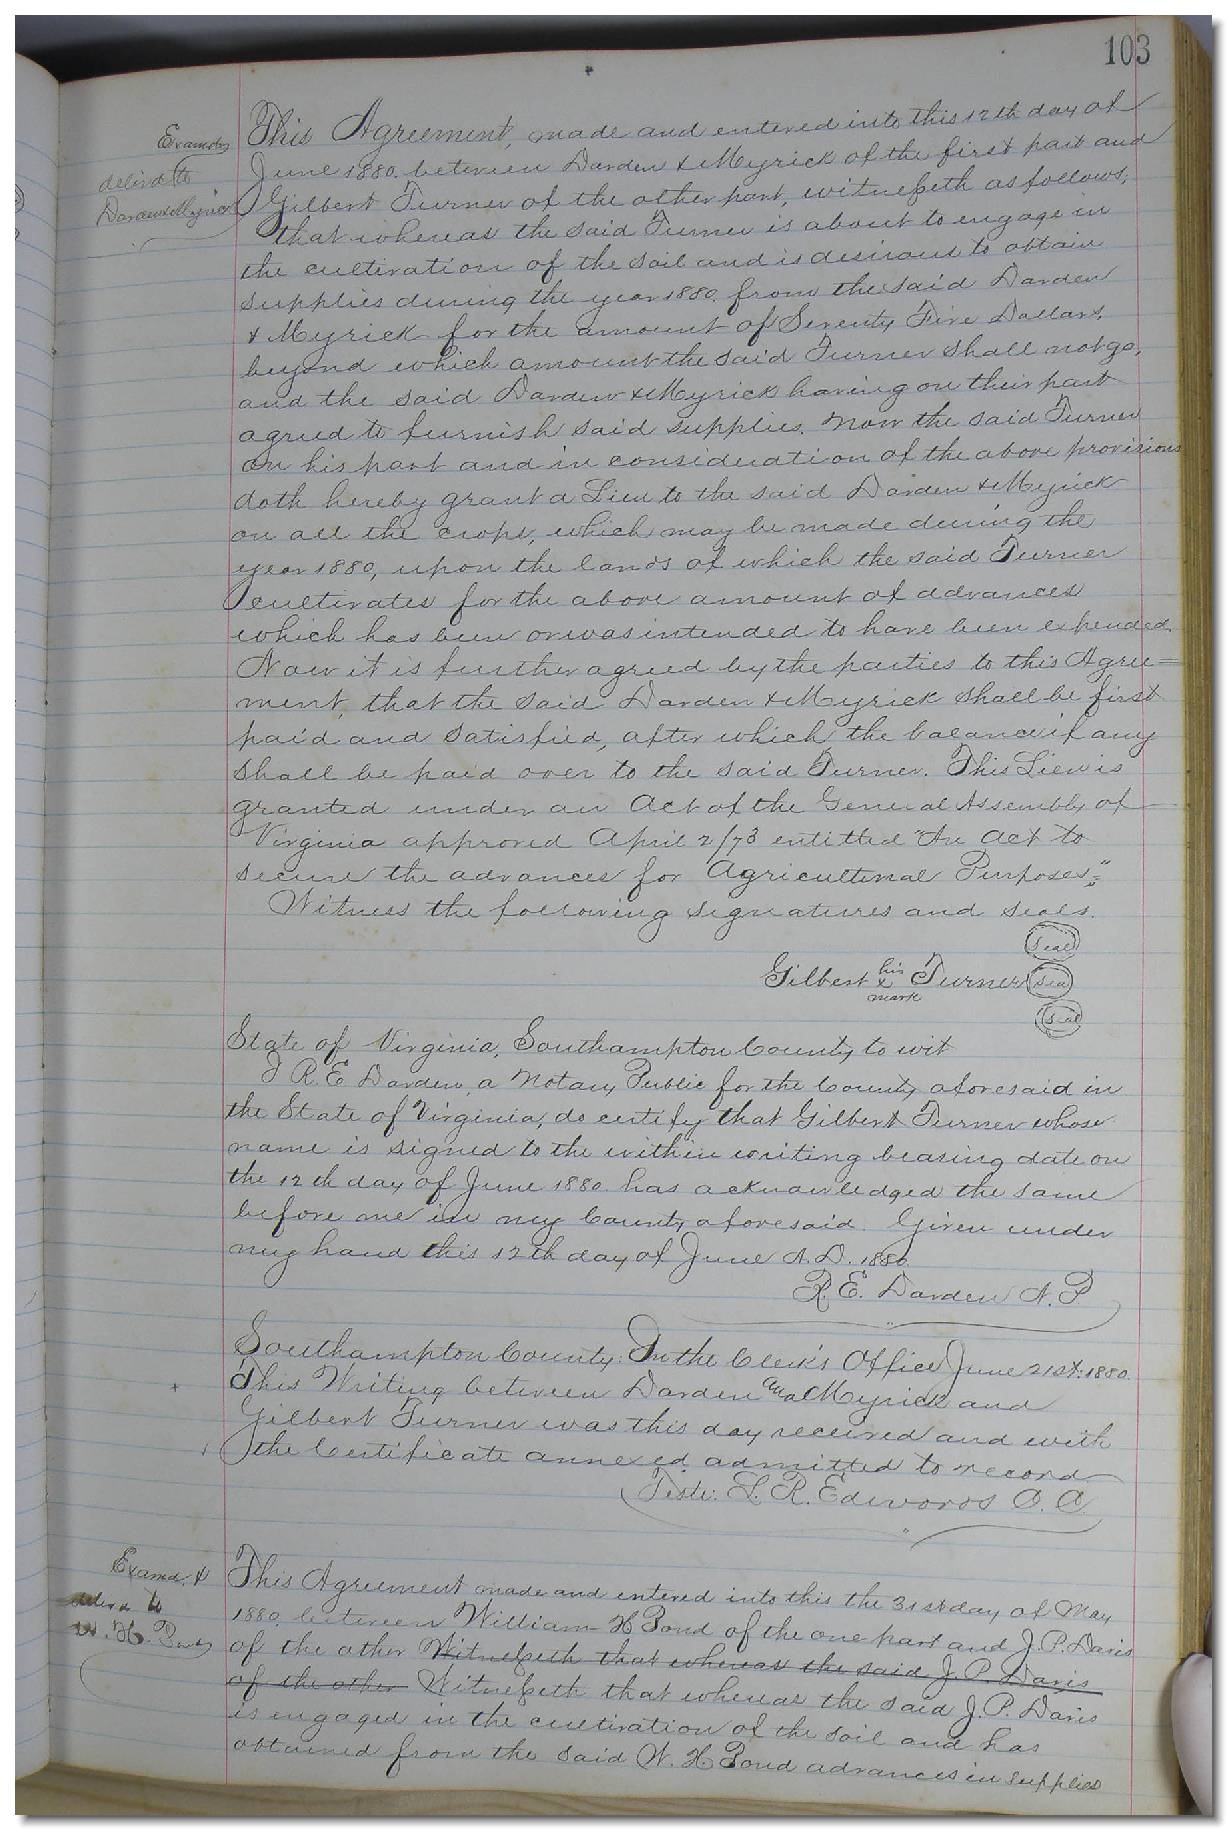 103
Examd &
delivd to
Darden & Myrick
This Agreement, made and entered into this 12th day of
June 1880. between Darden & Myrick of the first part and
Gilbert Turner of the other part, witnesseth as follows;
that whereas the said Turner is about to engage in
the cultivation of the soil and is desirous to obtain
supplies during the year 1880. from the said Darden
& Myrick for the amount of Seventy Five Dollars,
beyond which amount the said Turner shall not go,
and the said Darden & Myrick having on their part
agreed to furnish said supplies. Now the said Turner
on his part and in consideration of the above provisions
doth hereby grant a Lien to the said Darden & Myrick
on all the crops, which may be made during the
year 1880, upon the lands of which the said Turner
cultivates for the above amount of advances
which has been or was intended to have been expended.
Now it is further agreed by the parties to this Agree=
ment, that the said Darden & Myrick shall be first
paid and satisfied, after which the balance if any
shall be paid over to the said Turner. This Lien is
granted under an Act of the General Assembly of
Virginia approved April 2/73 entitled "An Act to
secure the advances for Agricultural Purposes;"
Witness the following signatures and seals.
Seal
Gilbert his x mark Turner Seal
Seal
State of Virginia, Southampton County to wit
I R. E. Darden, a Notary Public for the County aforesaid in
the State of Virginia, do certify that Gilbert Turner whose
name is signed to the within writing bearing date on
the 12th day of June 1880. has acknowledged the same
before me in my County aforesaid. Given under
my hand this 12th day of June A.D. 1880.
R. E. Darden N. P.
Southampton County: In the Clerk's Office June 21st. 1880.
This Writing between Darden and Myrick and
Gilbert Turner was this day received and with
the Certificate annexed admitted to record
Teste: L. R. Edwards D. C.
Examd. &
delivd to
W. H. Pond
This Agreement made and entered into this the 31st day of May
1880. between William H Pond of the one part and J. P. Davis
of the other Witnesseth that whereas the said J. P. Davis
of the other Witnesseth that whereas the said J. P. Davis
is engaged in the cultivation of the soil and has
obtained from the said W. H Pond advances in supplies